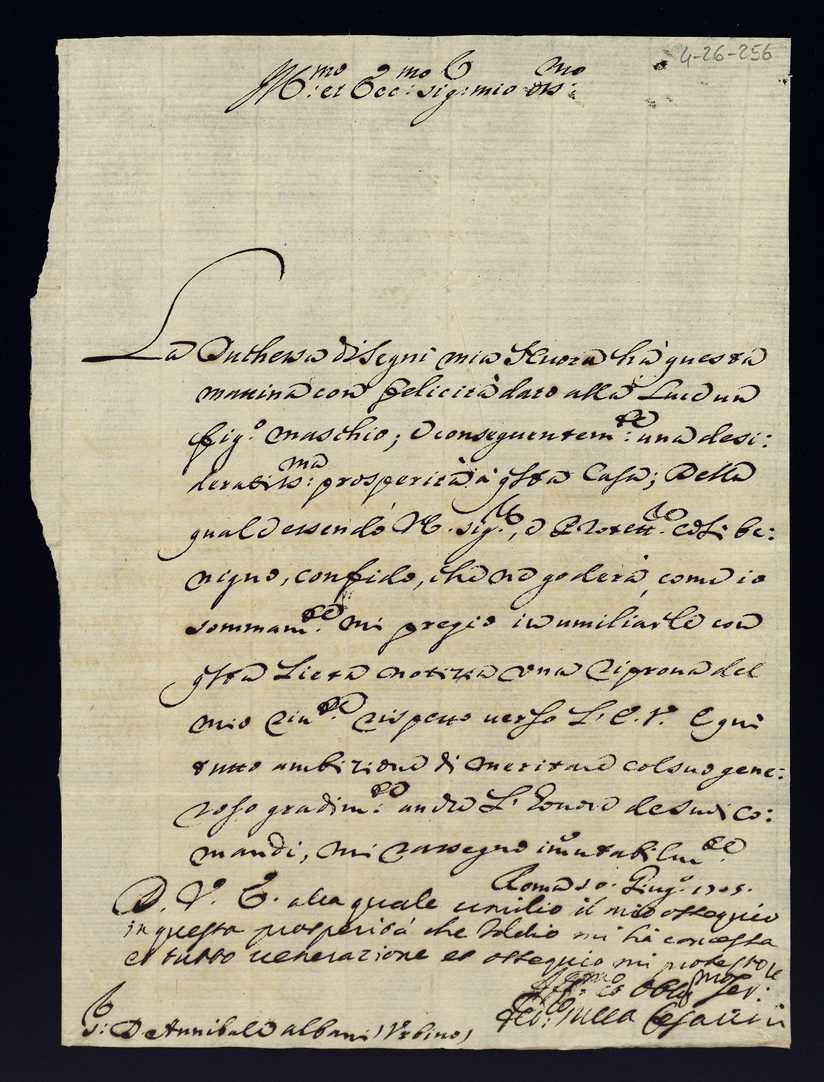 4-26-256
Ill:mo et Ecc:mo Sig:re mio oss:mo
La Duchessa di Segni mia Nuora hà questa
mattina con felicità dato alla Luce un
fig:o maschio; e conseguentem:te una desi:
deratiss:ma prosperità à q̃sta Casa; Della
quale essendo V.E. sig:re, e Protett:re così be:
nigno, confido, che ne goderà, come io
sommam:te mi pregio in umiliarle con
q̃sta Lieta notizia una riprova del
mio riv:te rispetto verso L'E.V. E qui
tutto ambizione di meritare col suo gene:
roso gradim:to anche L'honore de suoi co:
mandi, mi rassegno imutabilm:te
Roma 10. Giug:o 1705.
D. V. E. alla quale umilio il mio ossequio
in questa prosperità che Iddio mi hà concessa
et tutto venerazione et ossequio mi protesto
Aff:mo et Obbl:mo Ser:
Fed: Sforza Cesarini
S:r D. Annibale Albani (Urbino)